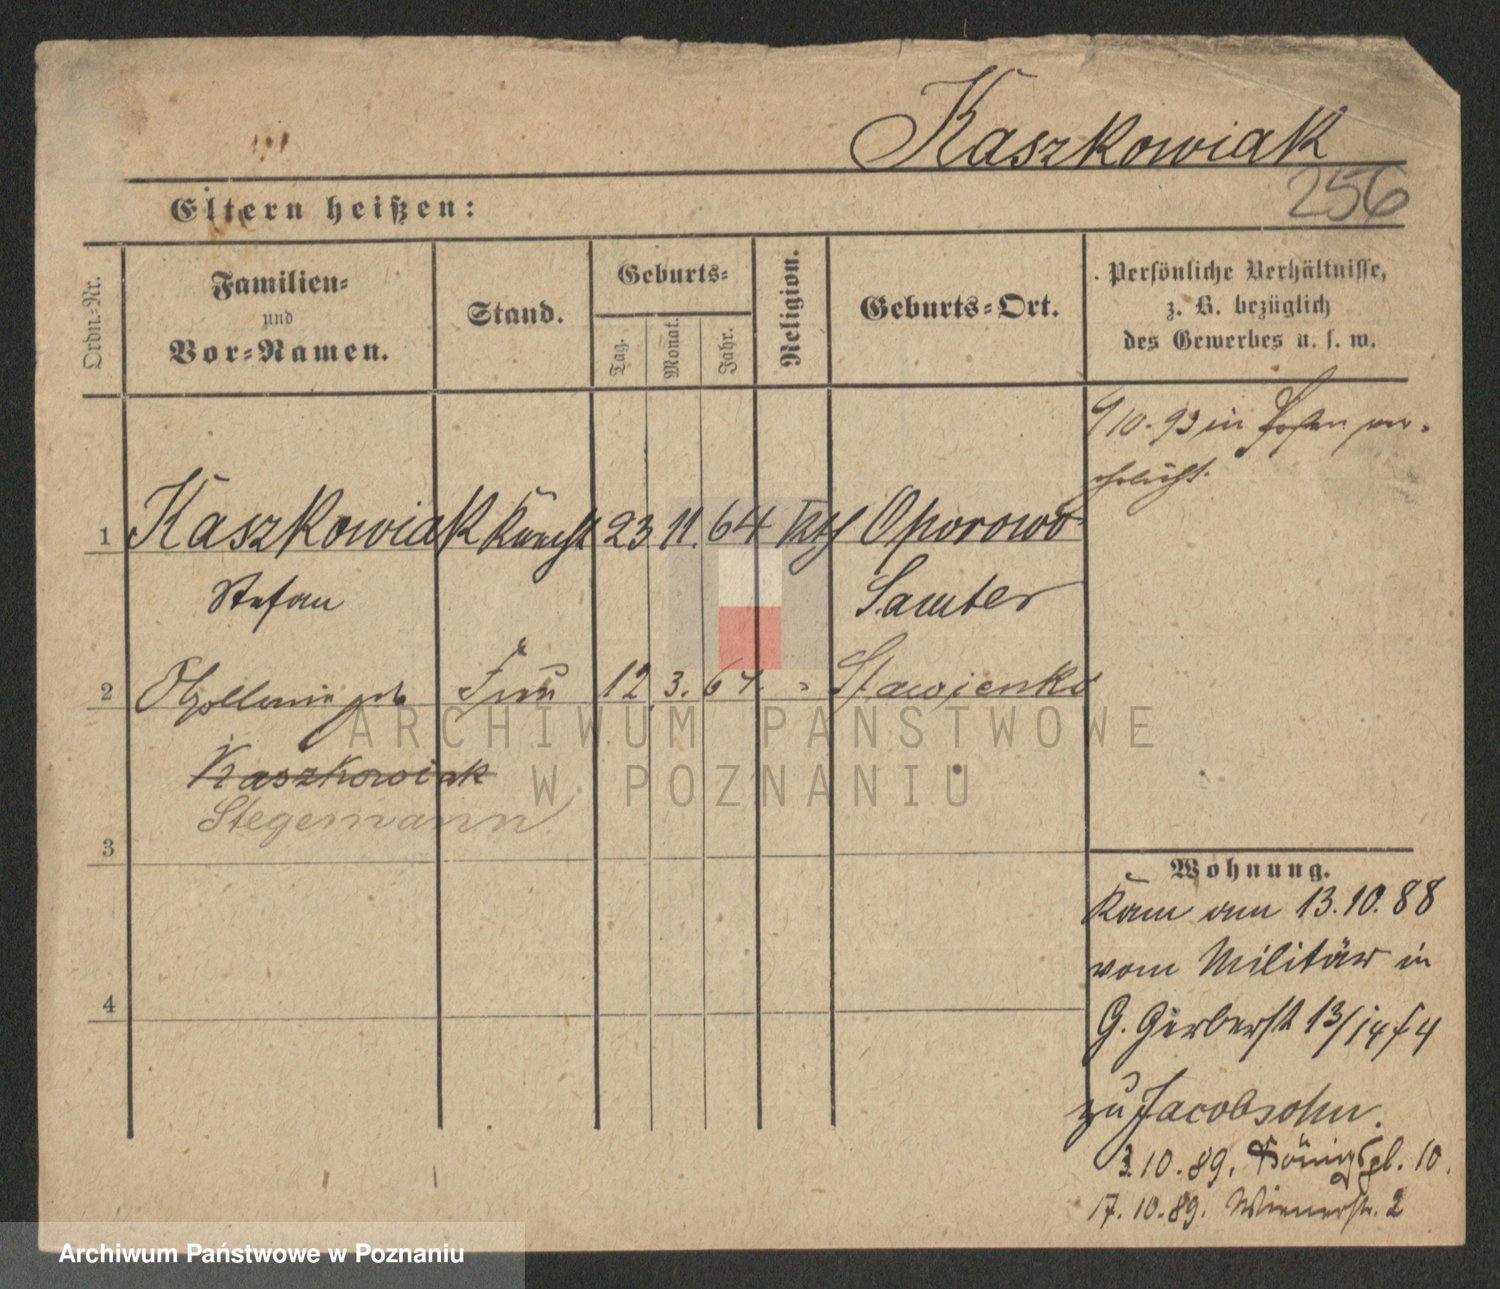 Kaszkowiak
256
Eltern heißen:
Ordn.-Nr.
Familien-
und
Vor-Namen.
Stand.
Geburts-
Tag.
Monat.
Jahr.
Religion.
Geburts-Ort.
Persönliche Verhältnisse,
z. B. bezüglich
des Gewerbes u. s. w.
9/10. 93 in Posen ver-
ehelicht.
1 Kaszkowiak Knecht 23 11. 64 kth Oporowo
Stefan Samter
2 Apollonia geb Frau 12. 3. 67. Stawienko
Kaszkowiak
Stegemann
3
4
Wohnung.
Kam am 13.10.88
vom Militär in
G. Gerberst 13/14
zu Jacobsohn.
3.10.89. Königspl. 10.
17.10.89. Wienerstr. 2
ARCHIWUM PAŃSTWOWE
W POZNANIU
Archiwum Państwowe w Poznaniu